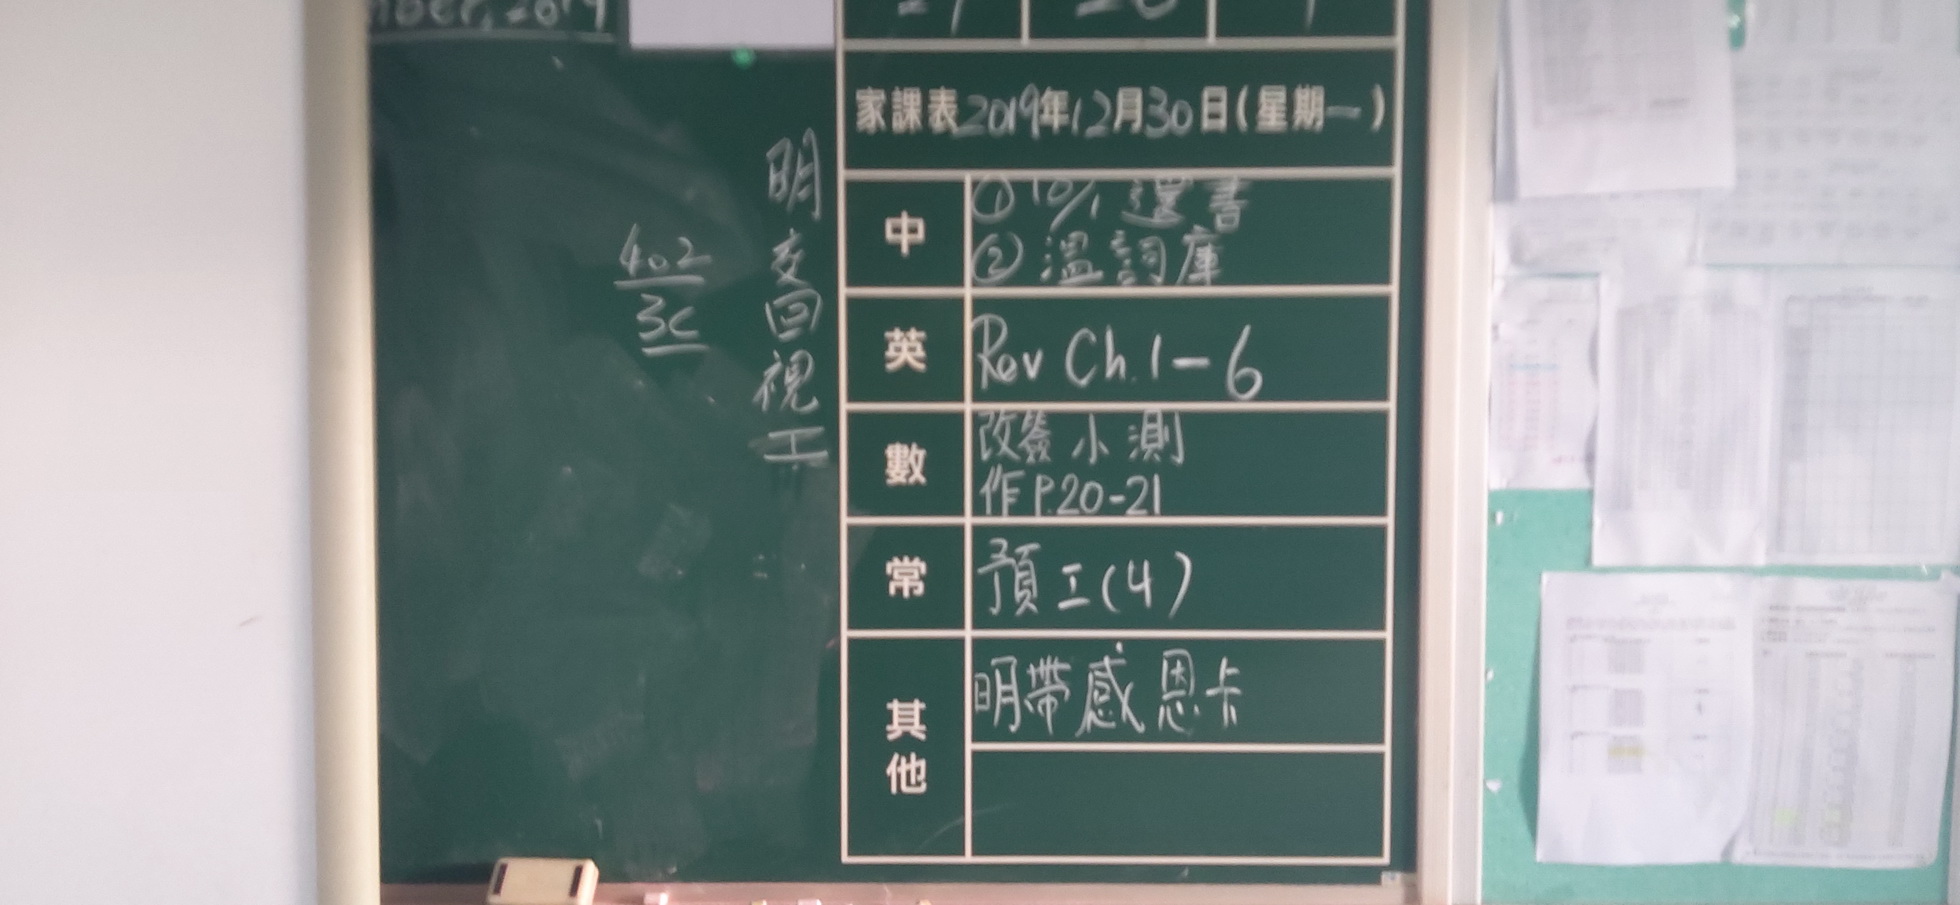 2019
402
3C
明交回視工
家課表2019年12月30日(星期一)
中
① 10/1 還書
② 溫詞庫
英
Rev Ch.1-6
數
改簽小測
作P.20-21
常
預工(4)
其他
明帶感恩卡